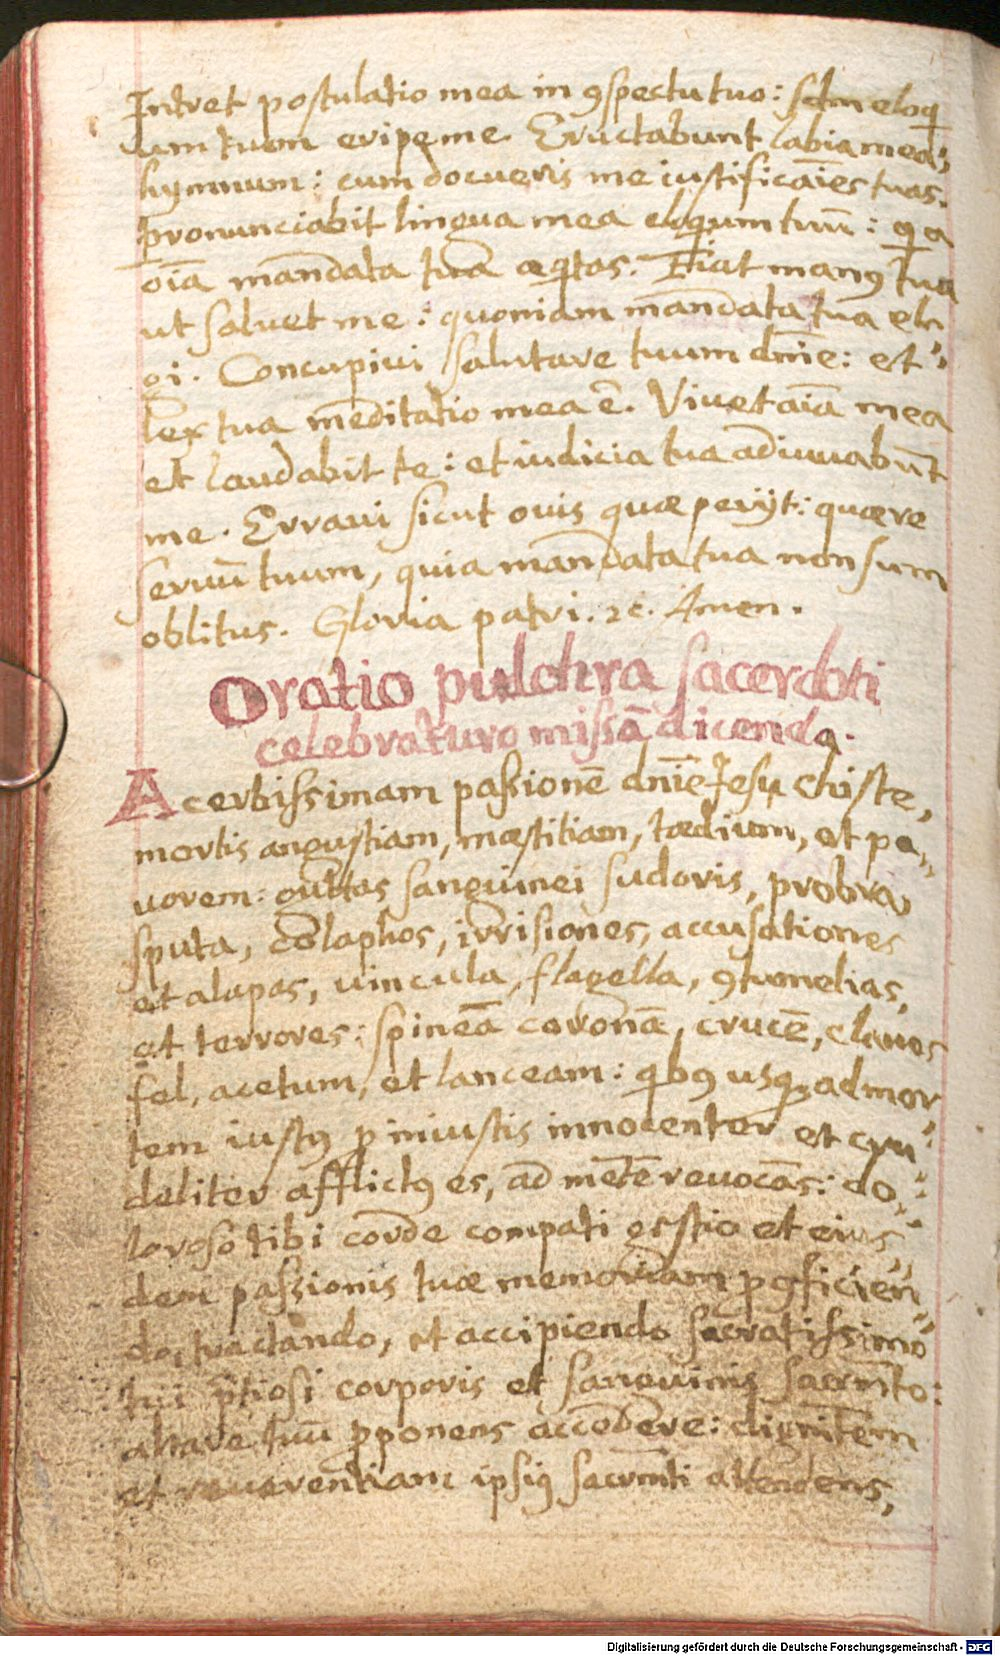 Intret postulatio mea in ꝯspectu tuo: scdm eloq
uium tuum eripe me. Eructabunt labia mea,
hymnum: cum docueris me iustificatiōes tuas.
Pronunciabit lingua mea eloquium tuū: qa
oīa mandata tua aeqtas. Fiat manꝰ tua
ut salvet me: quoniam mandata tua ele
gi. Concupivi salutare tuum dnīe: et
lex tua meditatio mea ē. Vivet aīa mea
et laudabit te: et iudicia tua adiuvabūt
me. Erravi sicut ovis quæ perijt: quære
servū tuum, quia mandata tua non sum
oblitus. Gloria patri. ꝛc. Amen.
Oratio pulchra sacerdoti
celebraturo missā dicenda.
Acerbissimam passionē dnīe Jesu Christe,
mortis angustiam, mæstitiam, tædium, et pa,,
vorem: guttas sanguinei sudoris, probra,
sputa, colaphos, irrisiones, accusationes
et alapas, vincula, flagella, ꝯtumelias,
et terrores: spineā coronā, crucē, claves
fel, acetum, et lanceam: qbꝰ usqꝫ ad mor
tem iustꝰ p iniustis innocenter et cru,,
deliter afflictꝰ es, ad mētē revocās: do,,
loroso tibi corde compati gestio et eius,,
dem passionis tuæ memoriam pꝯficien,,
do, tractando, et accipiendo sacratissimo
tui ptiosi corporis et sanguinis sacrmto:
altare tuū pponens accedere: dignitem
et reverentiam ipsiꝰ sacrmti attendens,
Digitalisierung gefördert durch die Deutsche Forschungsgemeinschaft - DFG